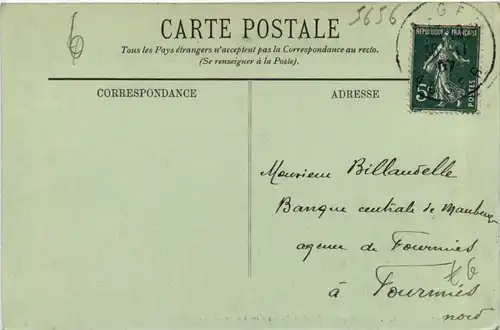 5656
6
CARTE POSTALE
Tous les Pays étrangers n'acceptent pas la Correspondance au recto.
(Se renseigner à la Poste).
CORRESPONDANCE
ADRESSE
REPUBLIQUE FRANÇAISE
5
POSTES
Monsieur Billaudelle
Banque centrale de Maubeuge
agence de Fourmies
à Fourmies
nord